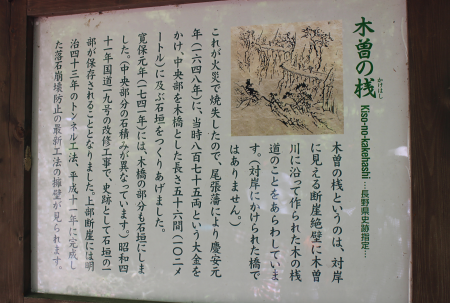 木曽の桟
かけはし
Kiso-no-kakehashi
…長野県史跡指定…
木曽の桟というのは、対岸
に見える断崖絶壁に木曽
川に沿って作られた木の桟
道のことをあらわしていま
す。(対岸にかけられた橋で
はありません。)
これが火災で焼失したので、尾張藩により慶安元
年(一六四八年)に、当時八百七十五両という大金を
かけ、中央部を木橋とした長さ五十六間(一〇二メ
ートル)に及ぶ石垣をつくりあげました。
寛保元年(一七四一年)には、木橋の部分も石垣にしま
した。(中央部分の石積みが異なっています。)昭和四
十一年国道一九号の改修工事で、史跡として石垣の一
部が保存されることとなりました。上部断崖には明
治四十三年のトンネル工法、平成十一年に完成し
た落石崩壊防止の最新工法の擁壁が見られます。